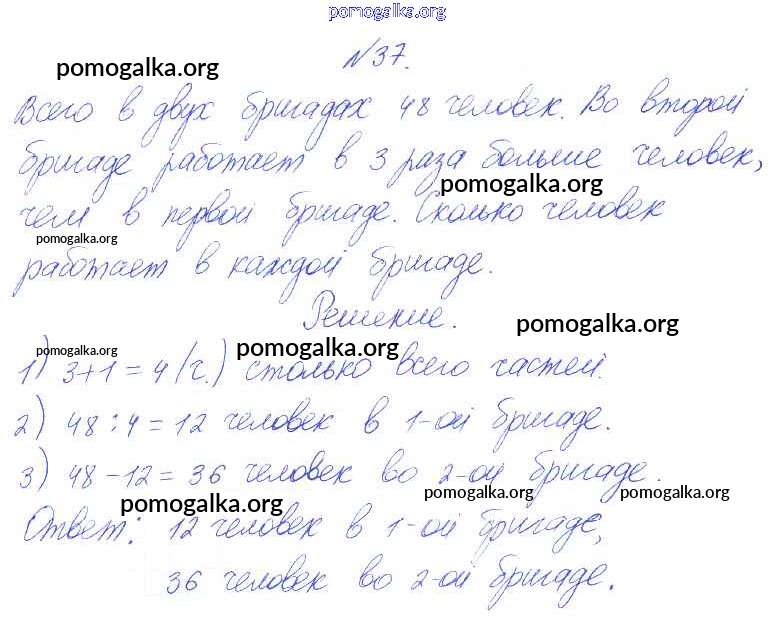 pomogalka.org
№37.
pomogalka.org
Всего в двух бригадах 48 человек. Во второй
бригаде работает в 3 раза больше человек,
pomogalka.org
чем в первой бригаде. Сколько человек
pomogalka.org
работает в каждой бригаде.
Решение.
pomogalka.org
pomogalka.org
pomogalka.org
1) 3+1=4 (ч.) столько всего частей.
2) 48:4=12 человек в 1-ой бригаде.
3) 48-12=36 человек во 2-ой бригаде.
pomogalka.org
pomogalka.org
pomogalka.org
Ответ: 12 человек в 1-ой бригаде,
36 человек во 2-ой бригаде.